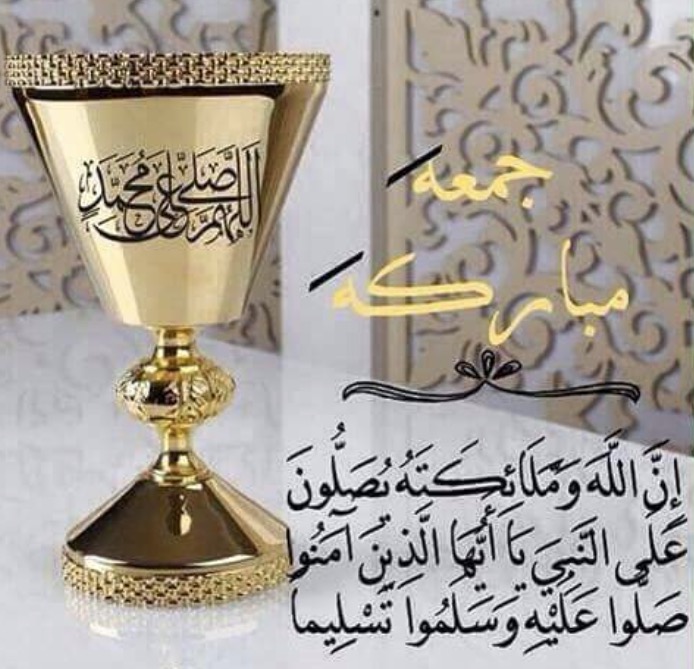 اللهم صل على محمد
جمعه
مباركه
إِنَّ اللَّهَ وَمَلَائِكَتَهُ يُصَلُّونَ
عَلَى النَّبِيِّ يَا أَيُّهَا الَّذِينَ آمَنُوا
صَلُّوا عَلَيْهِ وَسَلِّمُوا تَسْلِيماً